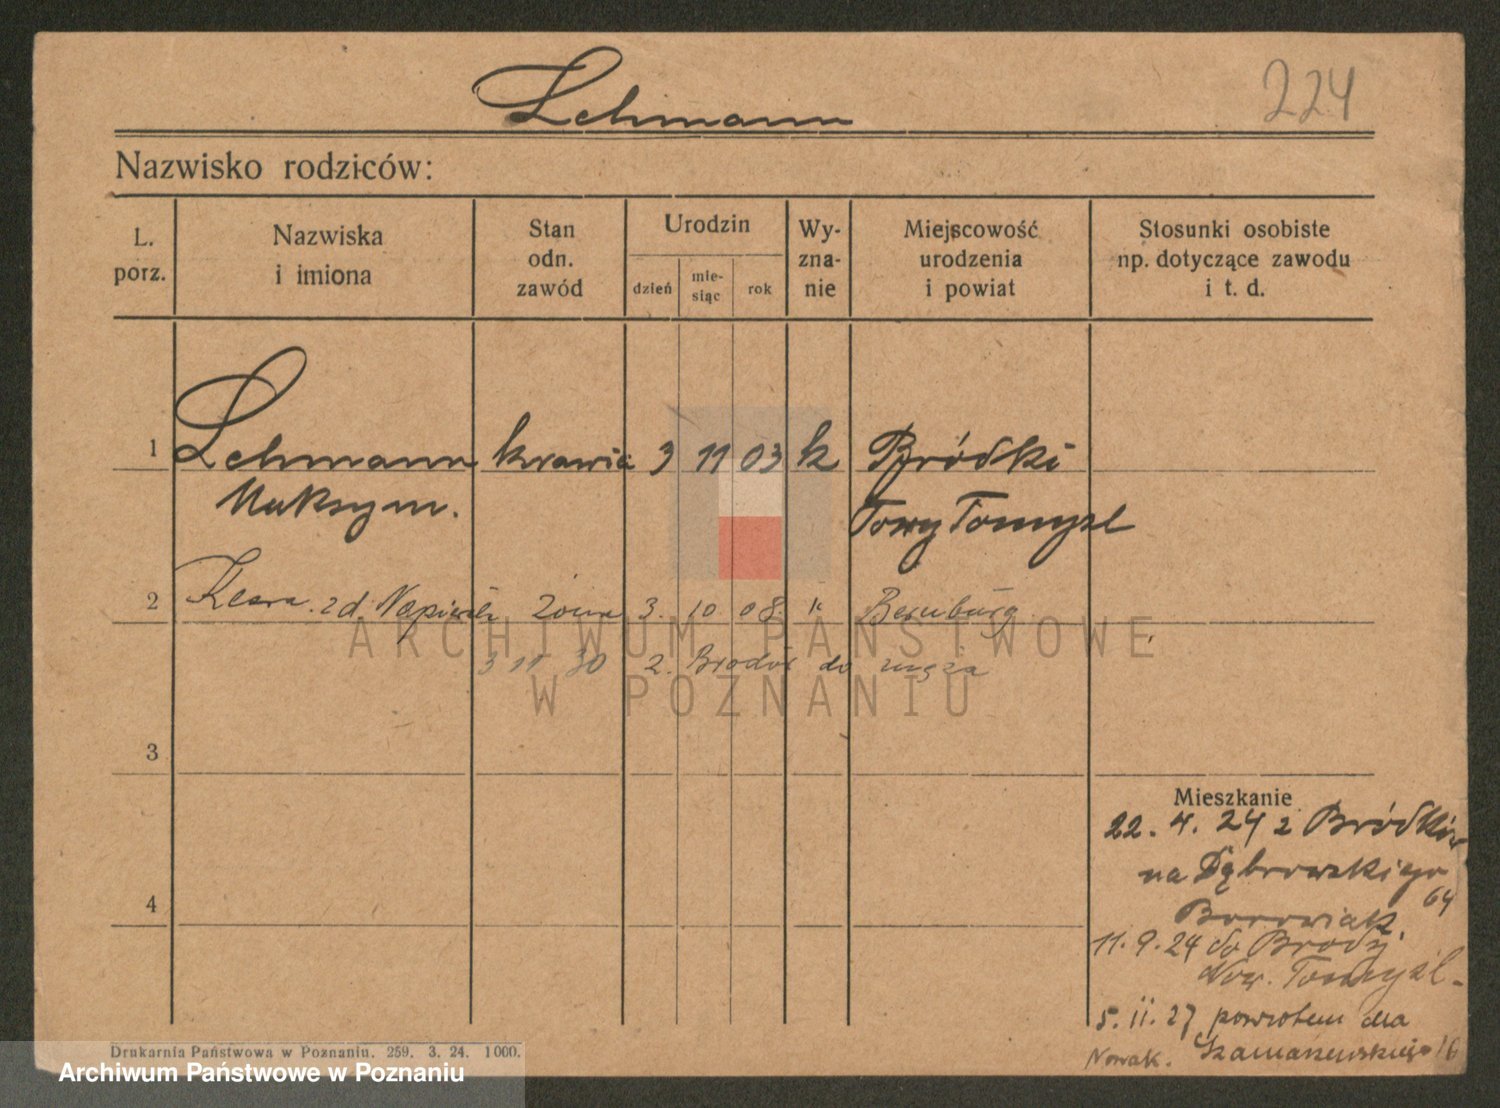 Lehmann
224
Nazwisko rodziców:
L. porz.
Nazwiska i imiona
Stan odn. zawód
Urodzin
dzień
mie-siąc
rok
Wy-zna-nie
Miejscowość urodzenia i powiat
Stosunki osobiste np. dotyczące zawodu i t. d.
1 Lehmann krawiec 3 11 03 k Bródki
Maksym. Nowy Tomyśl
2 Klara zd. żona 3. 10 08. k Bernburg
3 11 30 z do męża
3
Mieszkanie
22. 4. 24 z Bródków
na Dąbrowskiego
64
4
Borowiak.
11. 9. 24 do Brody
Now. Tomyśl
5. 11. 27 powrotem dla
Nowak. Szamarzewskiego 16
Drukarnia Państwowa w Poznaniu. 259. 3. 24. 1000.
ARCHIWUM PAŃSTWOWE
W POZNANIU
Archiwum Państwowe w Poznaniu